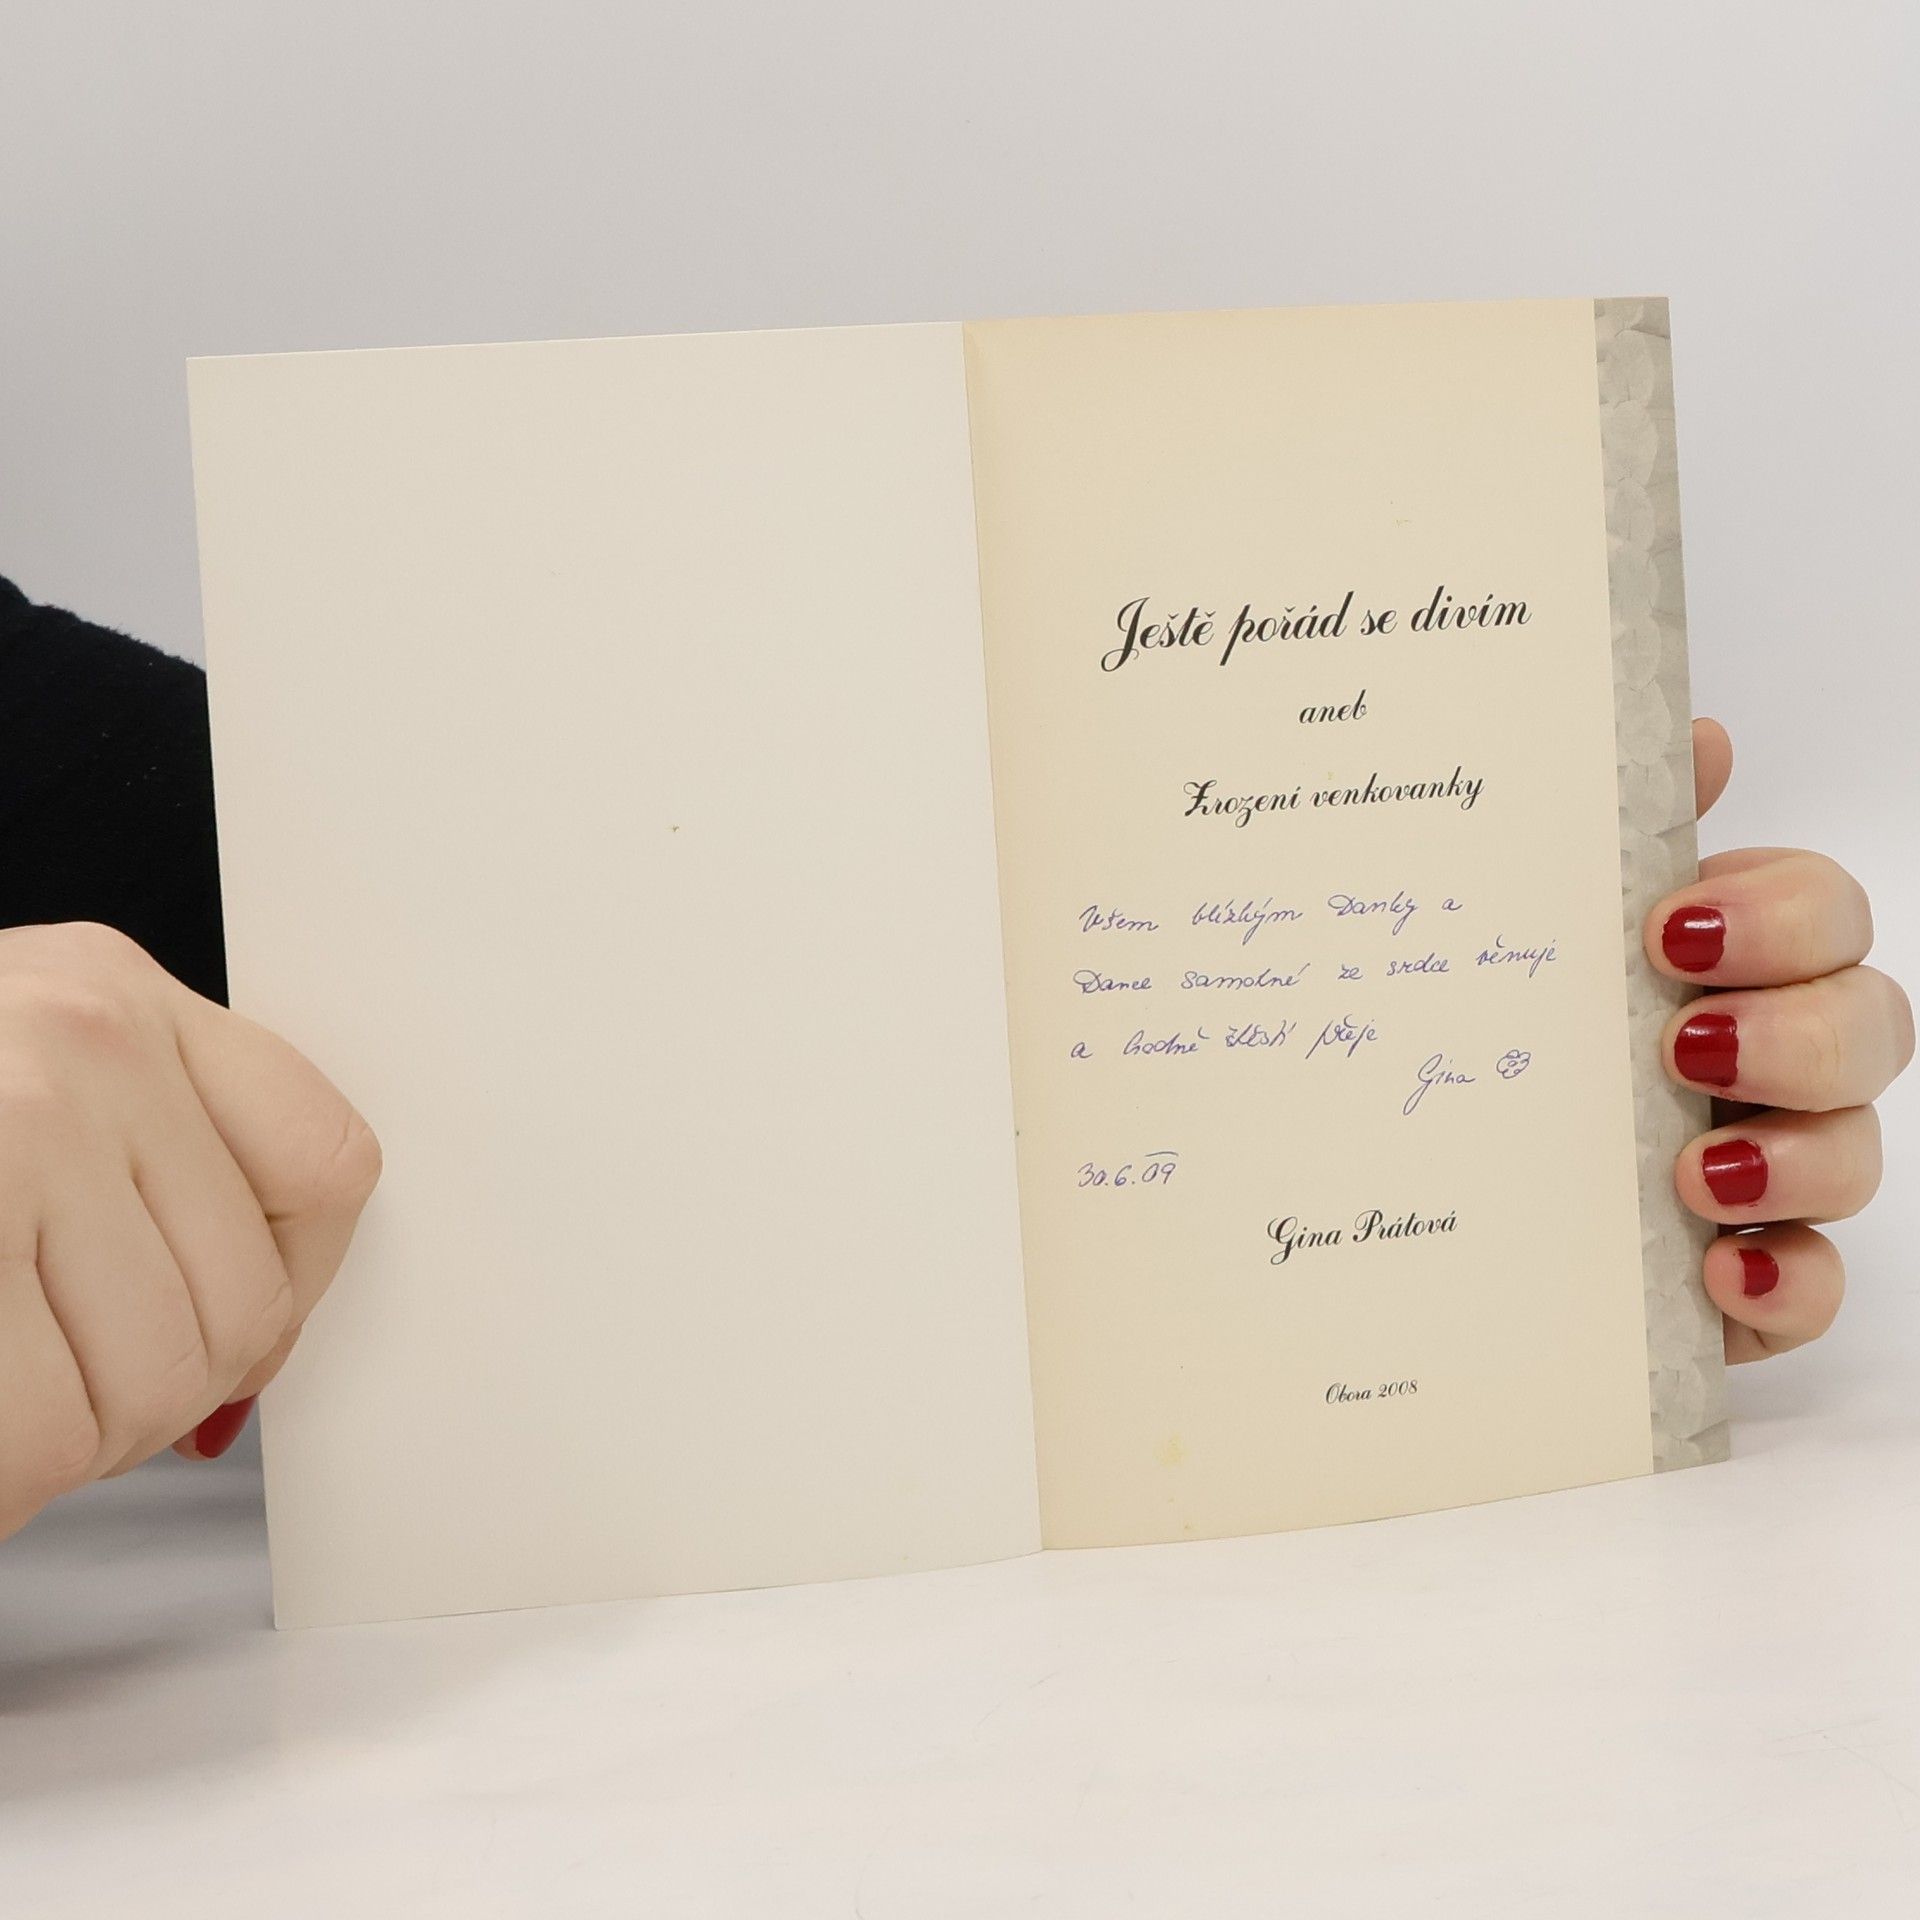 Ještě pořád se divím
aneb
Zrození venkovanky
Všem blízkým Danky a
Dance samotné ze srdce věnuje
a hodně štěstí přeje
Gina
30.6.09
Gina Prátová
Obora 2008